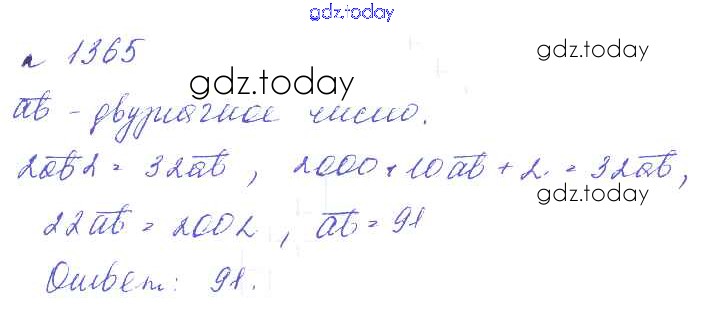 gdz.today
№ 1365
gdz.today
gdz.today
ab - двузначное число.
2ab2 = 32ab, 2000 + 10ab + 2 = 32ab,
gdz.today
gdz.today
22ab = 2002, ab = 91
Ответ: 91.
gdz.today